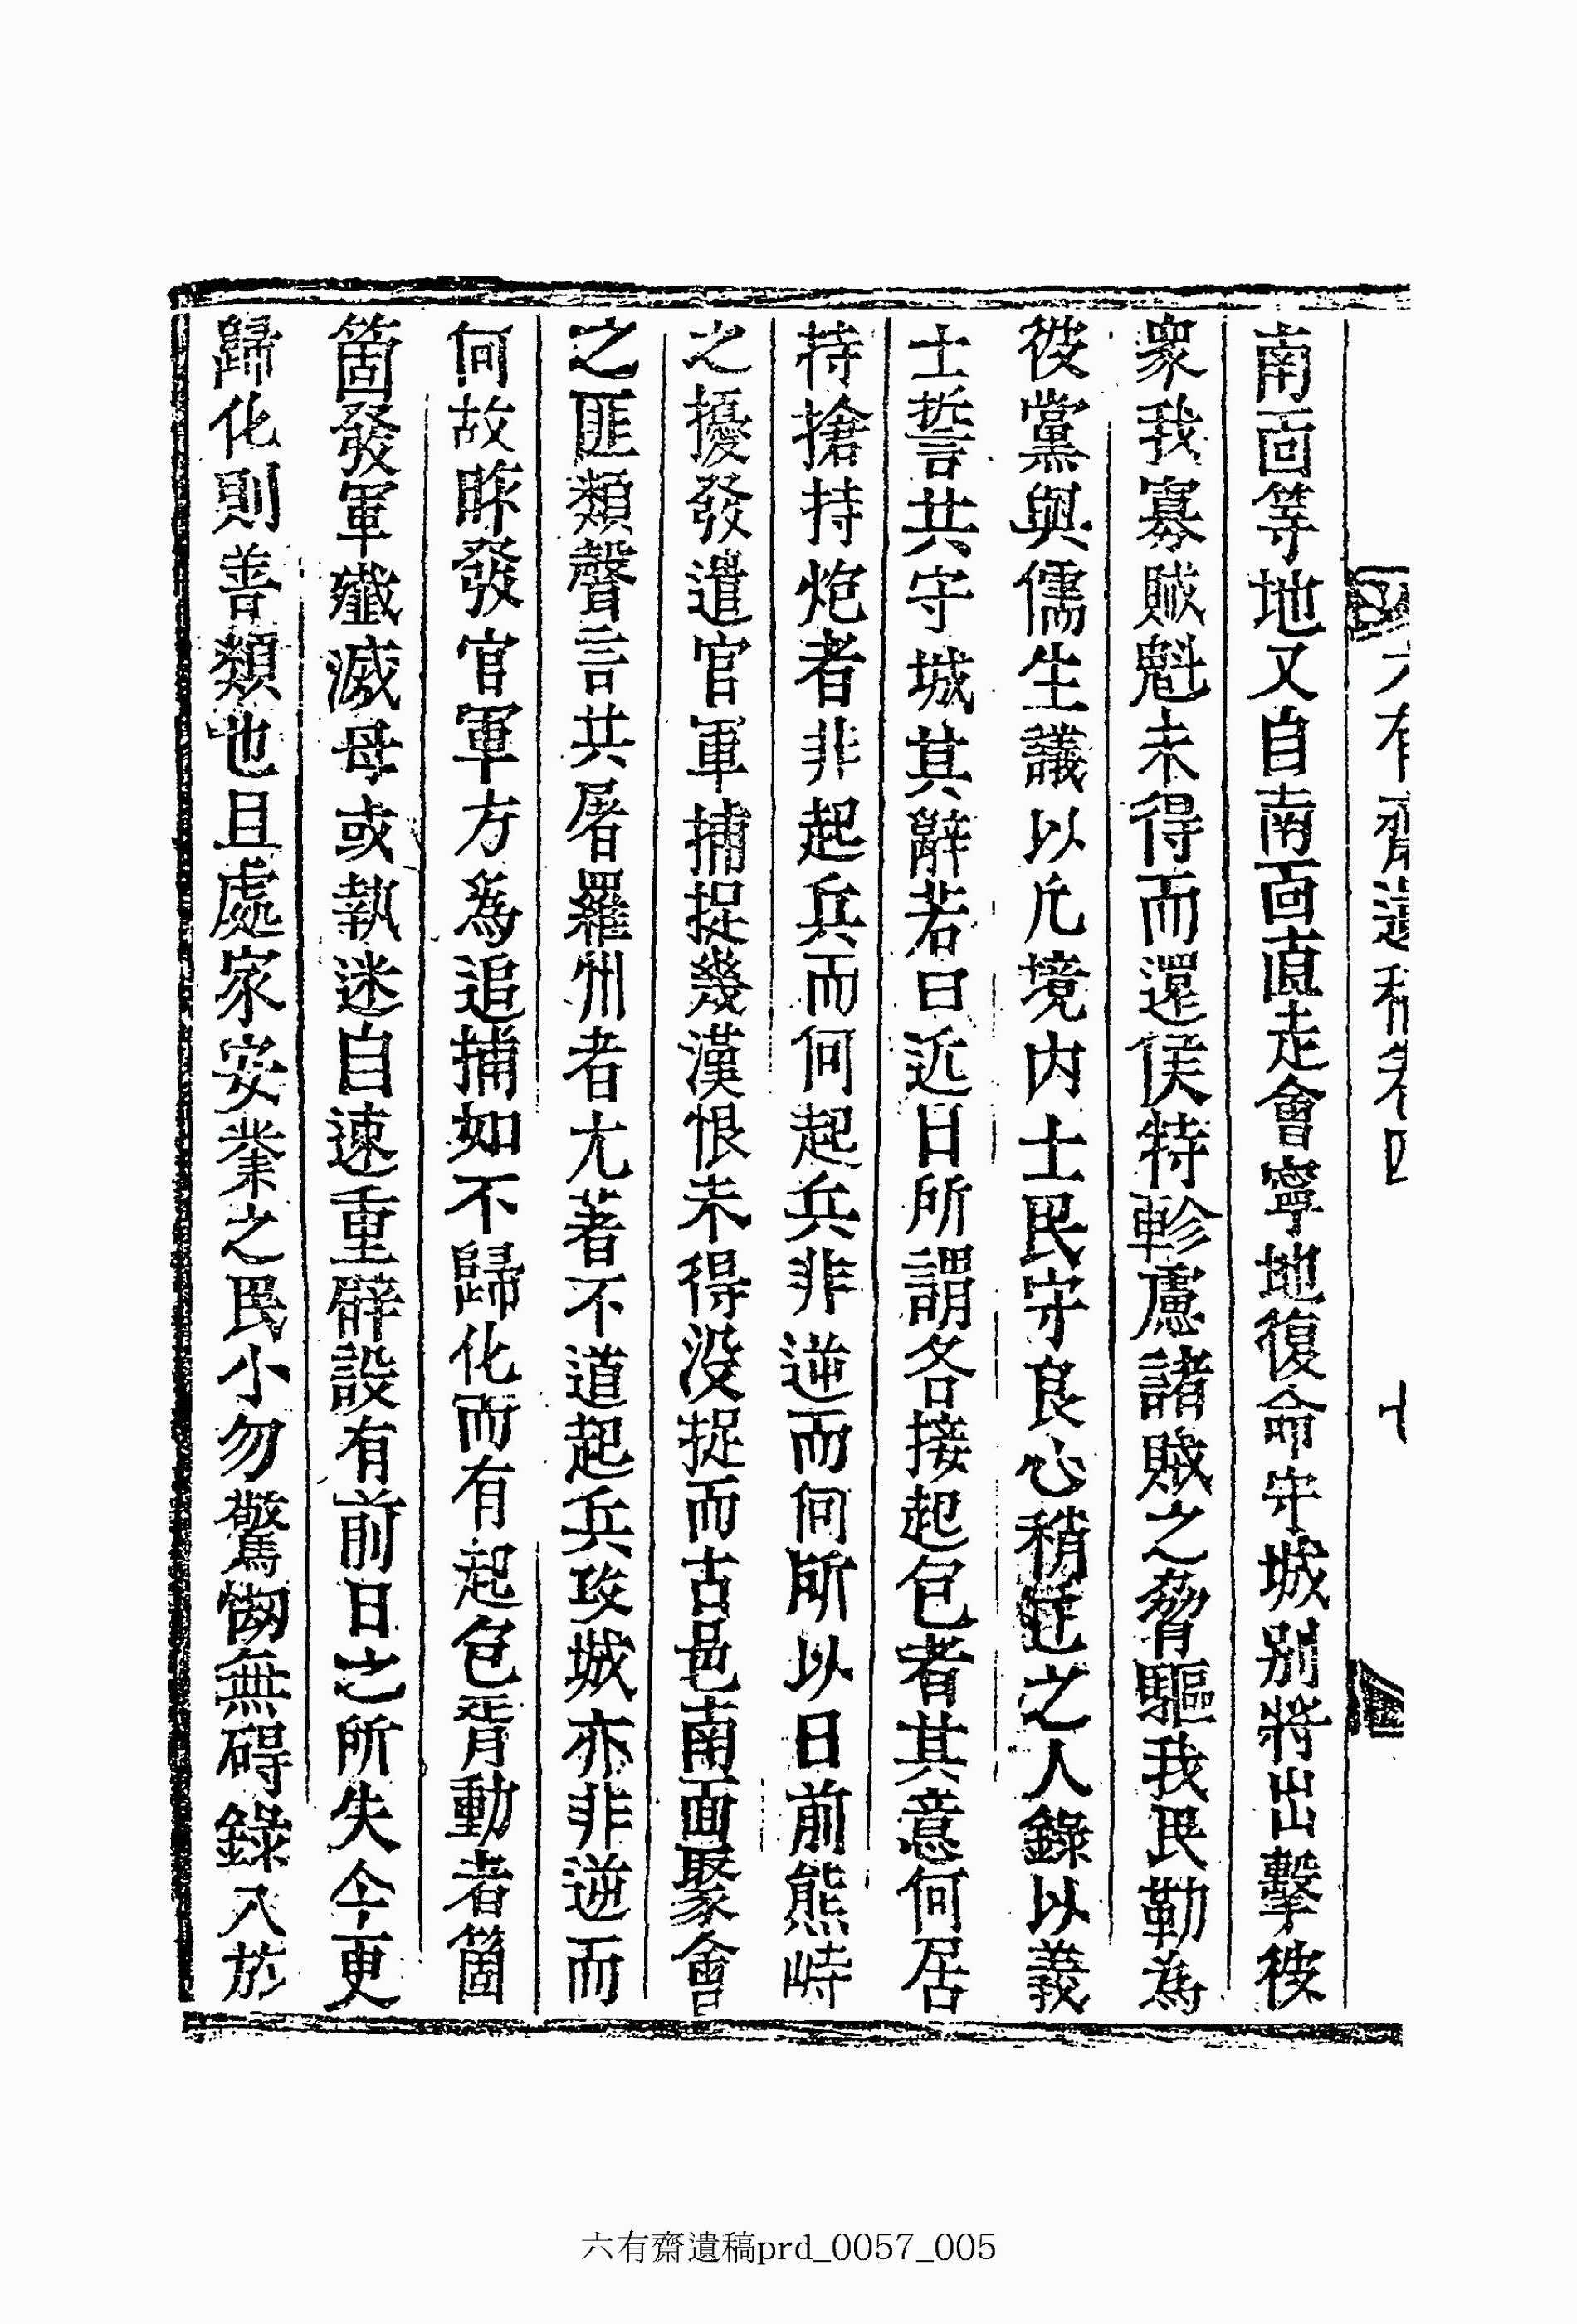 六有齋遺稿卷四 十
南面等地又自南面直走會寧地復命守城别將出擊彼
衆我寡賊魁未得而還侯特軫慮諸賊之脅驅我民勒為
彼黨與儒生議以凢境内士民守良心稍迂之人錄以義
士誓共守城其辭若曰近日所謂各接起包者其意何居
持搶持炮者非起兵而何起兵非逆而何所以日前熊峙
之擾發遣官軍捕捉幾漢恨未得没捉而古邑南面聚會
之匪類聲言共屠羅州者尤著不道起兵攻城亦非逆而
何故昨發官軍方為追捕如不歸化而有起包胥動者箇
箇發軍殲滅母或執迷自速重辟設有前日之所失今更
歸化則善類也且處家安業之民小勿驚㤼無碍錄入於
六有齋遺稿prd_0057_005